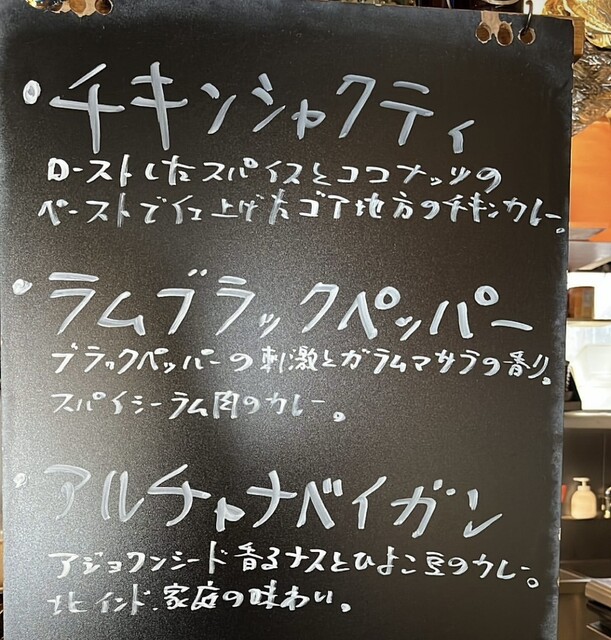 ・チキンシャクティ
ローストしたスパイスとココナッツの
ペーストで仕上げたゴア地方のチキンカレー。
・ラムブラックペッパー
ブラックペッパーの刺激とガラムマサラの香り。
スパイシーラム肉のカレー。
・アルチャナベイガン
アジョワンシード香るナスとひよこ豆のカレー。
北インド.家庭の味わい。